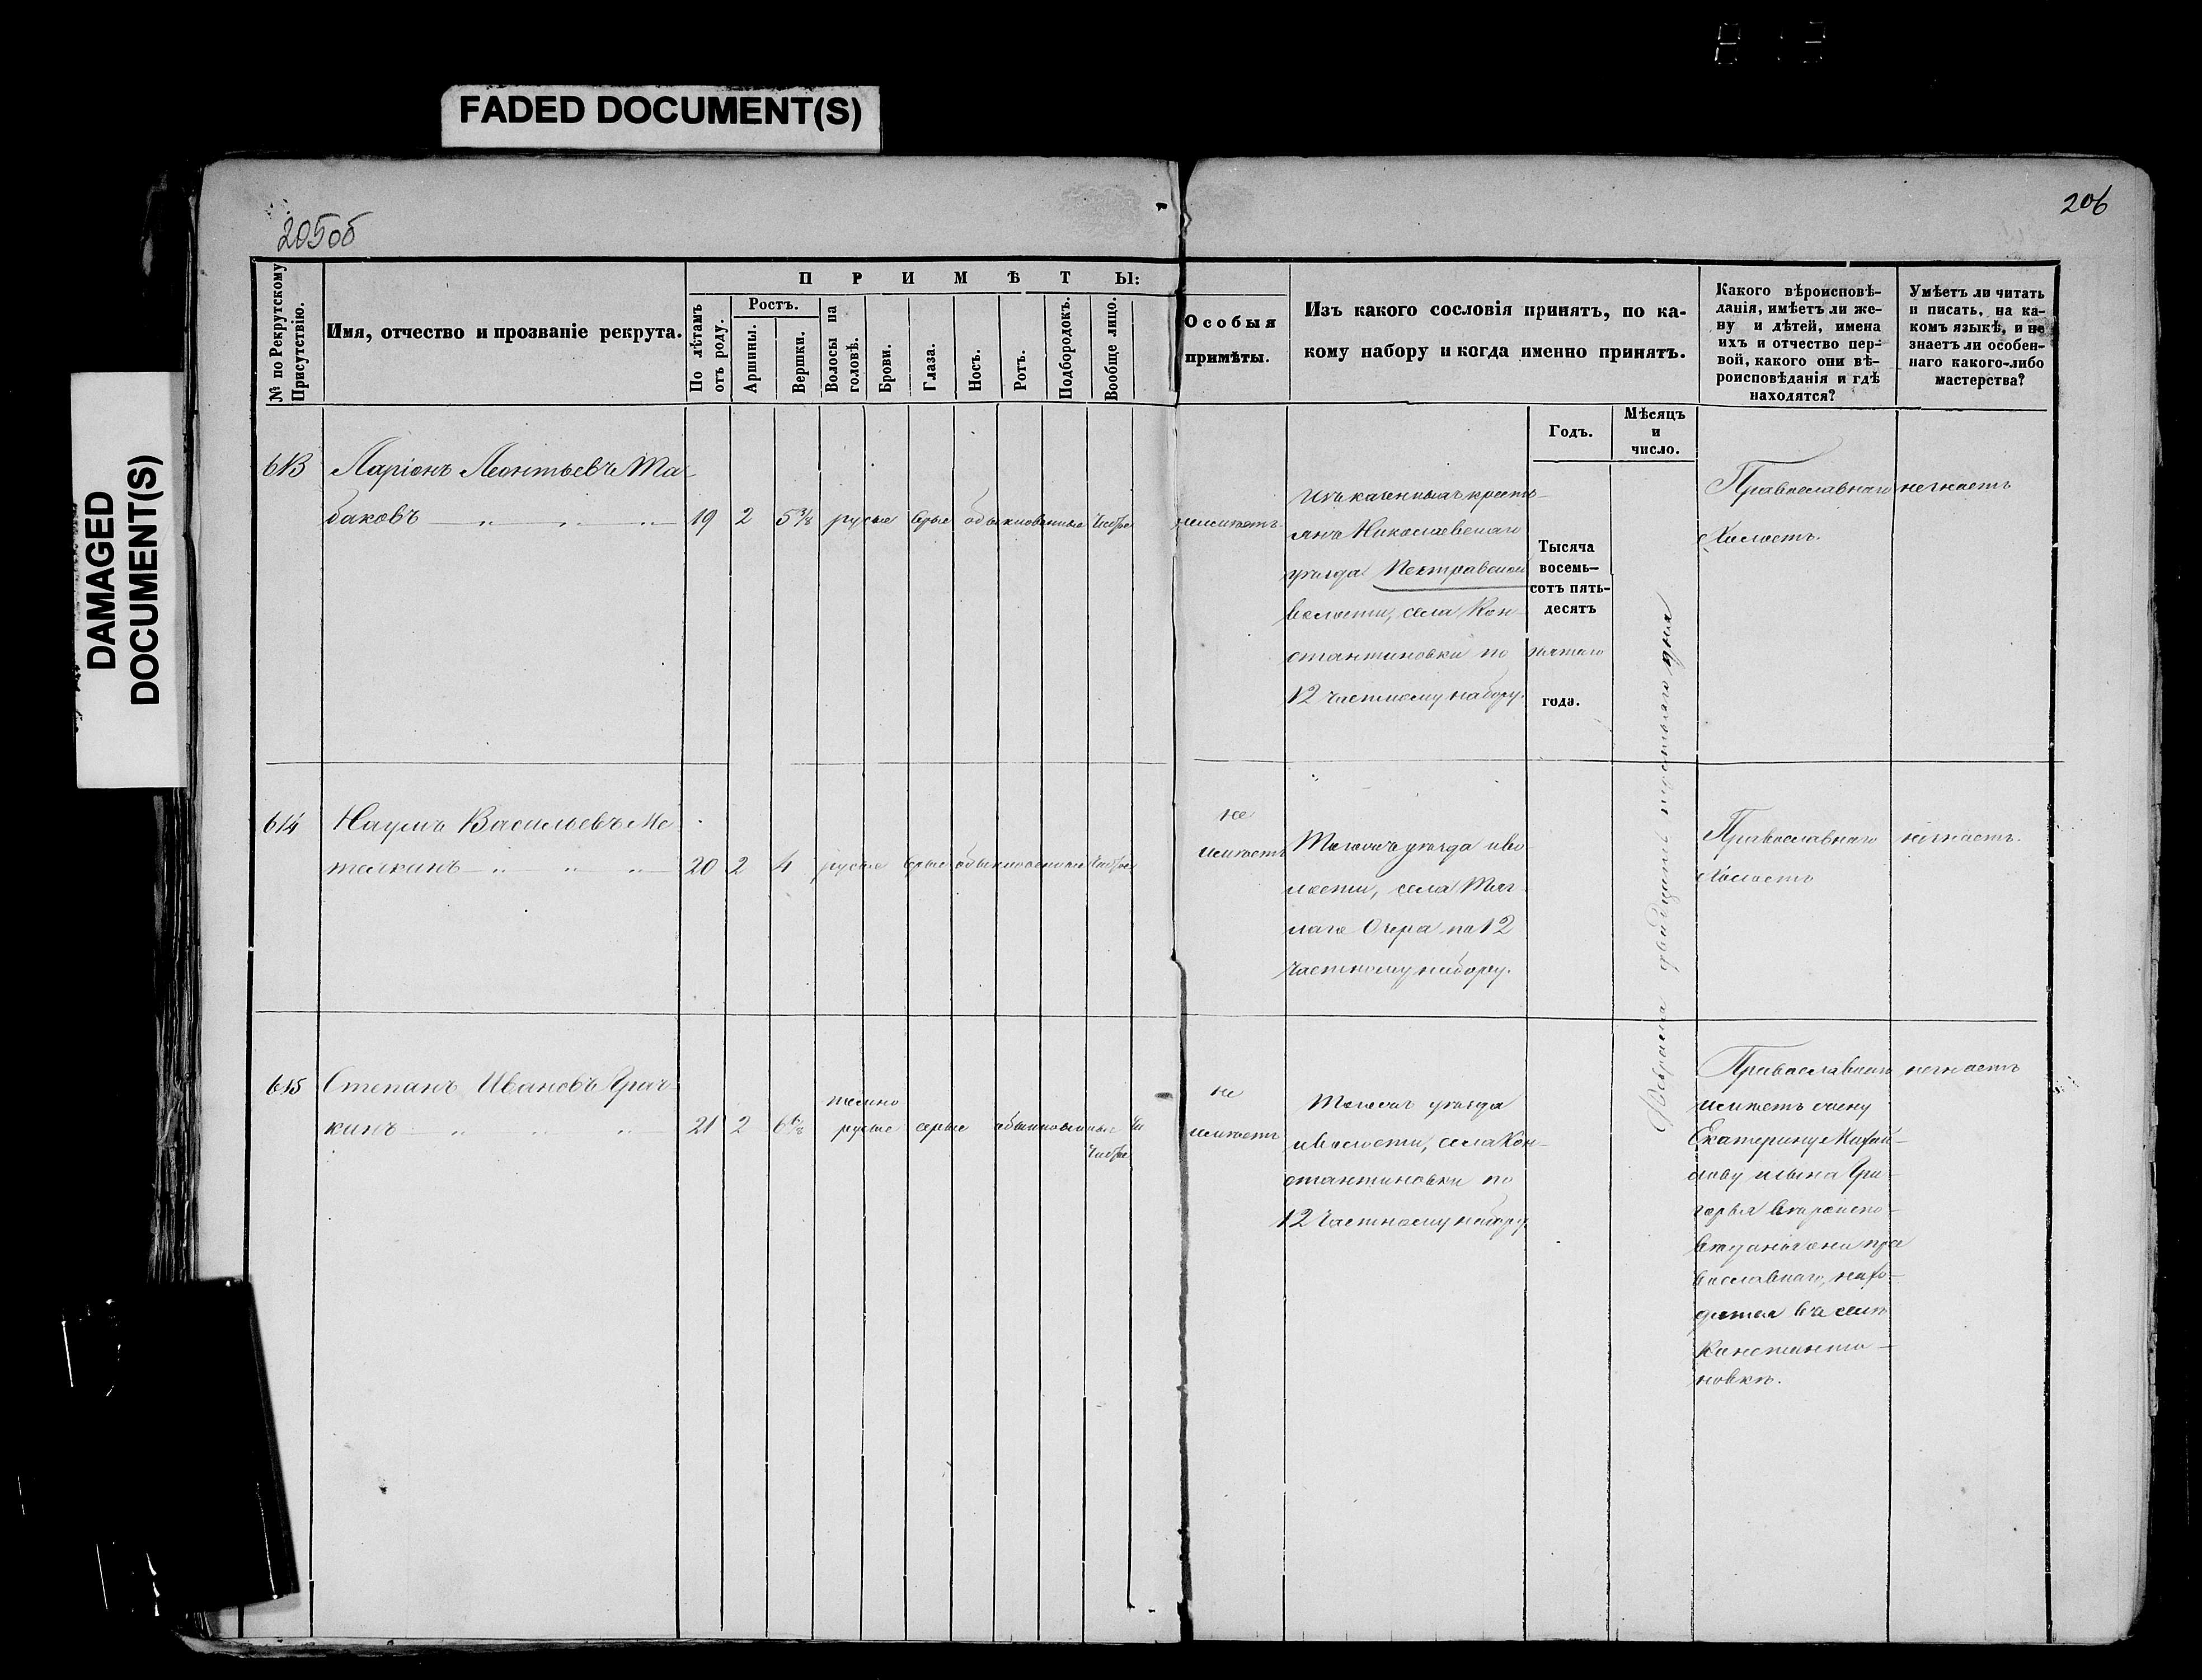 FADED DOCUMENT(S)
DAMAGED
DOCUMENT(S)
205об
206
№ по Рекрутскому
Присутствію.
Имя, отчество и прозваніе рекрута.
ПРИМѢТЫ:
По лѣтамъ
отъ роду.
Ростъ.
Аршины.
Вершки.
Волосы на
головѣ.
Брови.
Глаза.
Носъ.
Ротъ.
Подбородокъ.
Вообще лицо.
Особыя
примѣты.
Изъ какого сословія принятъ, по ка-
кому набору и когда именно принятъ.
Годъ.
Мѣсяцъ
и
число.
Какого вѣроисповѣ-
данія, имѣетъ ли же-
ну и дѣтей, имена
ихъ и отчество пер-
вой, какого они вѣ-
роисповѣданія и гдѣ
находятся?
Умѣетъ ли читать
и писать, на ка-
комъ языкѣ, и не
знаетъ ли особен-
наго какого-либо
мастерства?
613
Ларіонъ Леонтьевъ Та
баковъ
19 2 5 3/8 русые серые обыкновенные чистое
неимѣетъ
Изъ казенныхъ кресть-
янъ Николаевскаго
уѣзда Пестравской
волости, села Кон-
стантиновки по
12 частному набору.
Тысяча
восемь-
сотъ пять-
десятъ
пятаго
года.
Февраля двадцать шестаго дня
Православнаго
Холостъ.
незнаетъ
614
Наумъ Васильевъ Ме
телкинъ
20 2 4 русые серые обыкновенные чистое
не
имѣетъ
Тогожъ уѣзда иво-
лости, села Тяг-
лаго Озера по 12
частному набору.
Православнаго
Холостъ
незнаетъ.
615
Степанъ Ивановъ Грач-
кинъ
21 2 6 6/8
темно
русые серые обыкновенные
чистое
не
имѣетъ
Тогожъ уѣзда
иволости, села Кон-
стантиновки по
12 частному набору
Православнаго
имѣетъ жену
Екатерину Михай-
лову исына Гри-
горья вѣроиспо-
вѣданія они пра
вославнаго, нахо-
дятся въ селѣ
Константи-
новкѣ.
незнаетъ